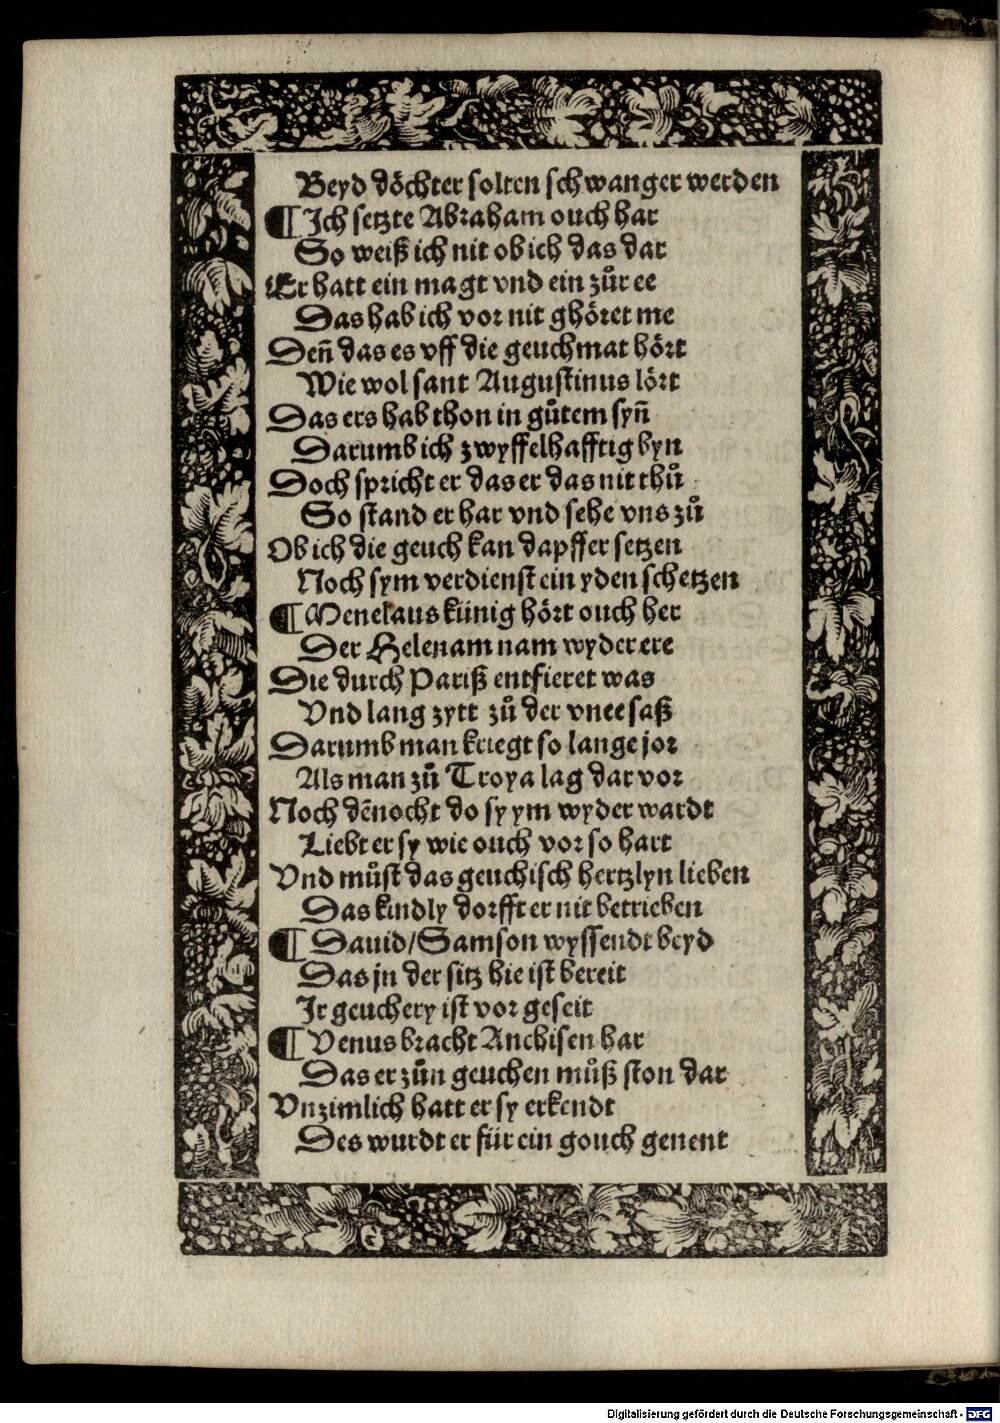 Beyd döchter solten schwanger werden
¶ Ich setzte Abraham ouch har
So weiß ich nit ob ich das dar
Er hatt ein magt vnd ein zůr ee
Das hab ich vor nit ghöret me
Deñ das es vff die geuchmat hört
Wie wol sant Augustinus lört
Das ers hab thon in gůtem syñ
Darumb ich zwyffelhafftig byn
Doch spricht er das er das nit thů
So stand er har vnd sehe vns zů
Ob ich die geuch kan dapffer setzen
Noch sym verdienst ein yden schetzen
¶ Menelaus künig hört ouch her
Der Helenam nam wyder ere
Die durch Pariß entfieret was
Vnd lang zytt zů der vnee saß
Darumb man kriegt so lange jor
Als man zů Troya lag dar vor
Noch dẽnocht do sy ym wyder wardt
Liebt er sy wie ouch vor so hart
Vnd můst das geuchisch hertzlyn lieben
Das kindly dorfft er nit betrieben
¶ Dauid/Samson wyssendt beyd
Das jn der sitz hie ist bereit
Ir geuchery ist vor geseit
¶ Venus bracht Anchisen har
Das er zůn geuchen můß ston dar
Vnzimlich hatt er sy erkendt
Des wurdt er für ein gouch genent
Digitalisierung gefördert durch die Deutsche Forschungsgemeinschaft - DFG